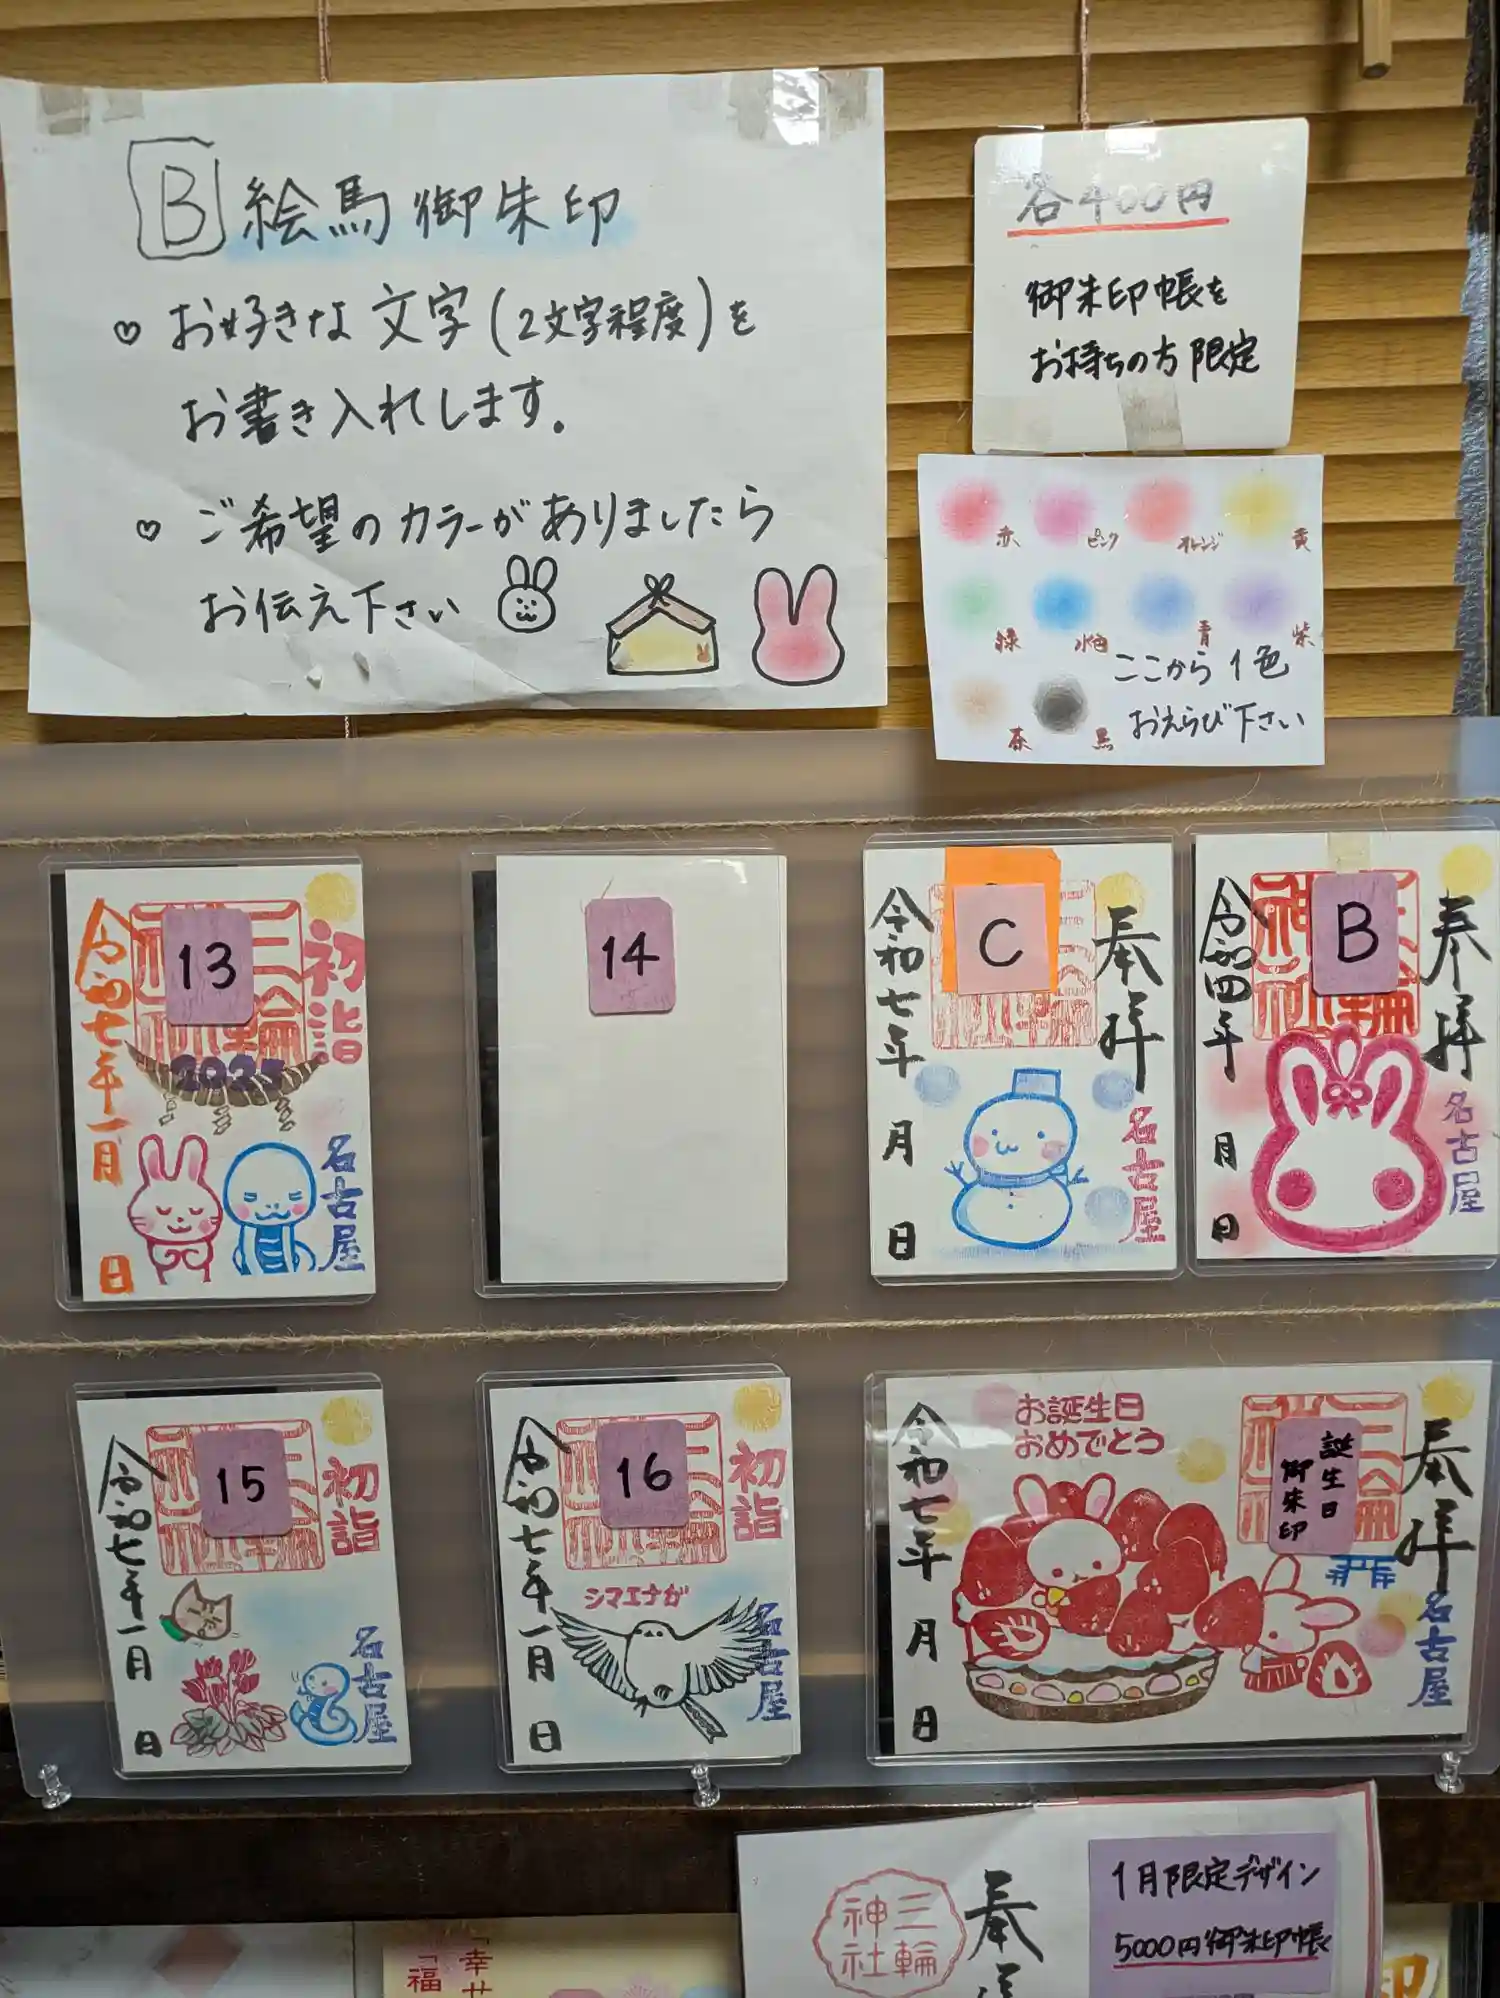 B 絵馬御朱印
♡ お好きな文字(2文字程度)を
お書き入れします。
♡ ご希望のカラーがありましたら
お伝え下さい
各400円
御朱印帳を
お持ちの方限定
赤 ピンク オレンジ 黄
緑 水色 青 紫
茶 黒
ここから1色
おえらび下さい
13
初詣
2025
令和七年一月 日
名古屋
14
C
奉拝
令和七年 月 日
名古屋
B
奉拝
令和四年 月 日
名古屋
15
初詣
令和七年一月 日
名古屋
16
初詣
シマエナガ
令和七年一月 日
名古屋
お誕生日
おめでとう
誕生日
御朱印
奉拝
令和七年 月 日
名古屋
三輪
神社
奉
1月限定デザイン
5000円御朱印帳
「幸せ
「福
印